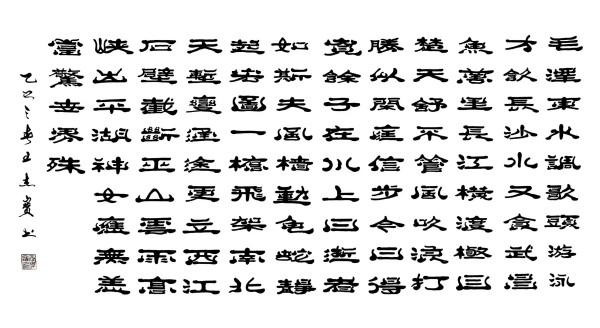 毛澤東水調歌頭游泳
才飲長沙水又食武昌
魚萬里長江橫渡極目
楚天舒不管風吹浪打
勝似閑庭信步今日得
寬餘子在川上曰逝者
如斯夫風檣動龜蛇靜
起宏圖一橋飛架南北
天塹變通途更立西江
石壁截斷巫山雲雨高
峽出平湖神女應無恙
當驚世界殊
乙巳之春王志